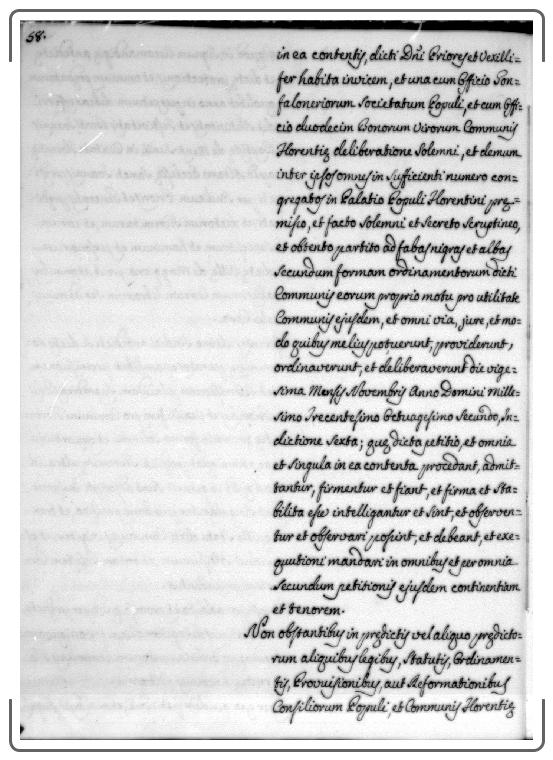 58.
in ea contentis, dicti Dñi Priores et Vexilli=
fer habita invicem, et una cum Officio Gon=
faloneriorum Societatum Populi, et cum Offi=
cio duodecim Bonorum Virorum Communis
Florentię deliberatione Solemni, et demum
inter ipsos omnes in Sufficienti numero con=
gregatos in Palatio Populi Florentini pręż=
misso, et facto Solemni et Secreto Scruptineo,
et obtento partito ad fabas nigras et albas
Secundum formam ordinamentorum dicti
Communis eorum proprio motu pro utilitate
Communis ejusdem, et omni via, jure, et mo=
do quibus melius potuerunt, providerunt,
ordinaverunt, et deliberaverunt die vige=
sima Mensis Novembris Anno Domini Mille=
simo Trecentesimo Octuagesimo Secundo, In=
dictione Sexta; quę dicta petitio, et omnia
et Singula in ea contenta procedant, admit=
tantur, firmentur et fiant, et firma et Sta=
bilita esse intelligantur et Sint, et observen=
tur et observari possint, et debeant, et exe=
quutioni mandari in omnibus et per omnia
Secundum petitionis ejusdem continentiam
et tenorem.
Non obstantibus in prędictis vel aliquo prędicto=
rum aliquibus legibus, Statutis, Ordinamen=
tis, Provisionibus, aut Reformationibus
Consiliorum Populi, et Communis Florentię